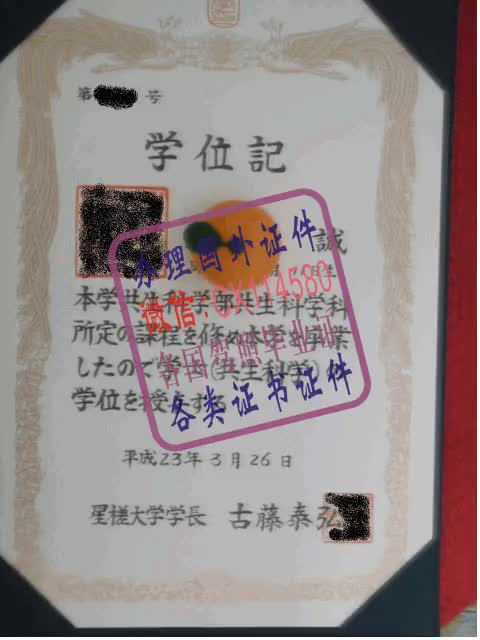 第 号
学位記
誠
本学共生科学部共生科学科
所定の課程を修め本学を卒業
したので学士(共生科学)の
学位を授与する
平成23年3月26日
星槎大学学長 古藤泰弘
办理国外证件
微信:
各国 毕业证
各类证书证件